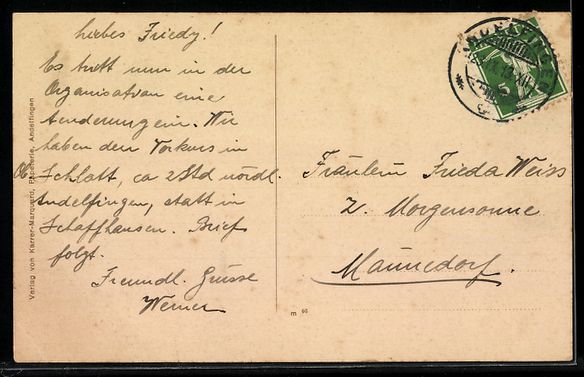 Liebes Friedy!
Es tritt nun in der
Organisation eine
Aenderung ein. Wir
haben den Vorkurs in
Ob. Schlatt, ca 2 Std nördl.
Andelfingen, statt in
Schaffhausen. Brief
folgt.
Freundl. Grüsse
Werner
Verlag von Karrer-Marquard, Papeterie, Andelfingen
Fräulein Frieda Weiss
z. Morgensonne
Männedorf.
5
m 95